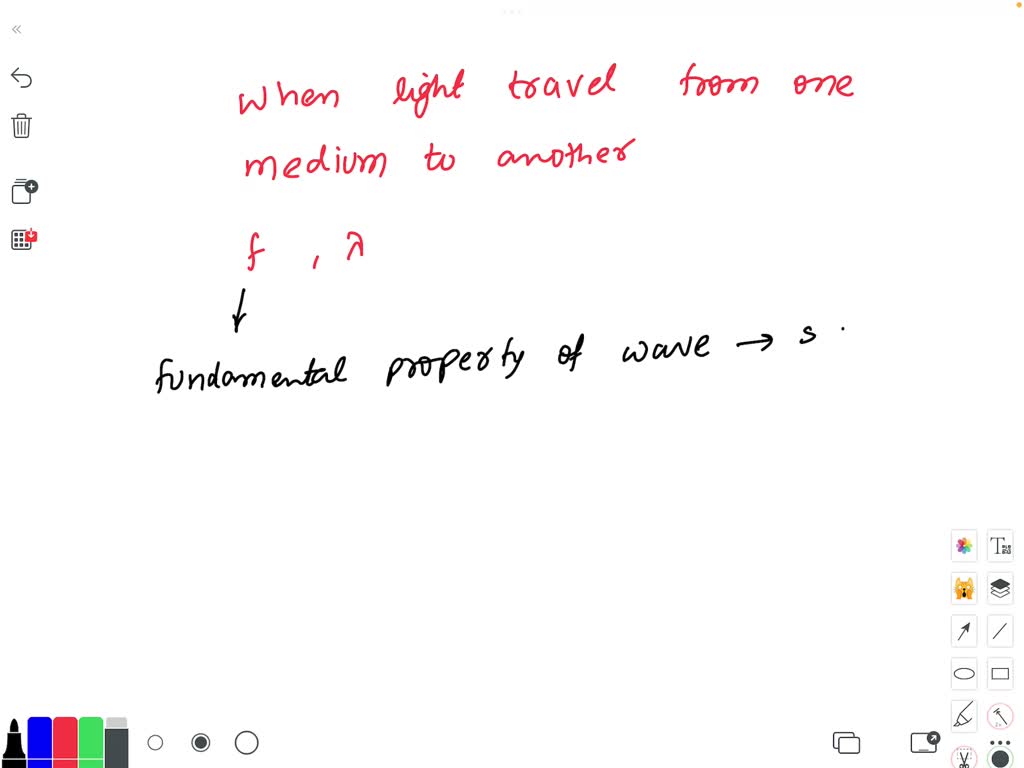 When light travel from one
medium to another
f , λ
↓
fundamental property of wave → s